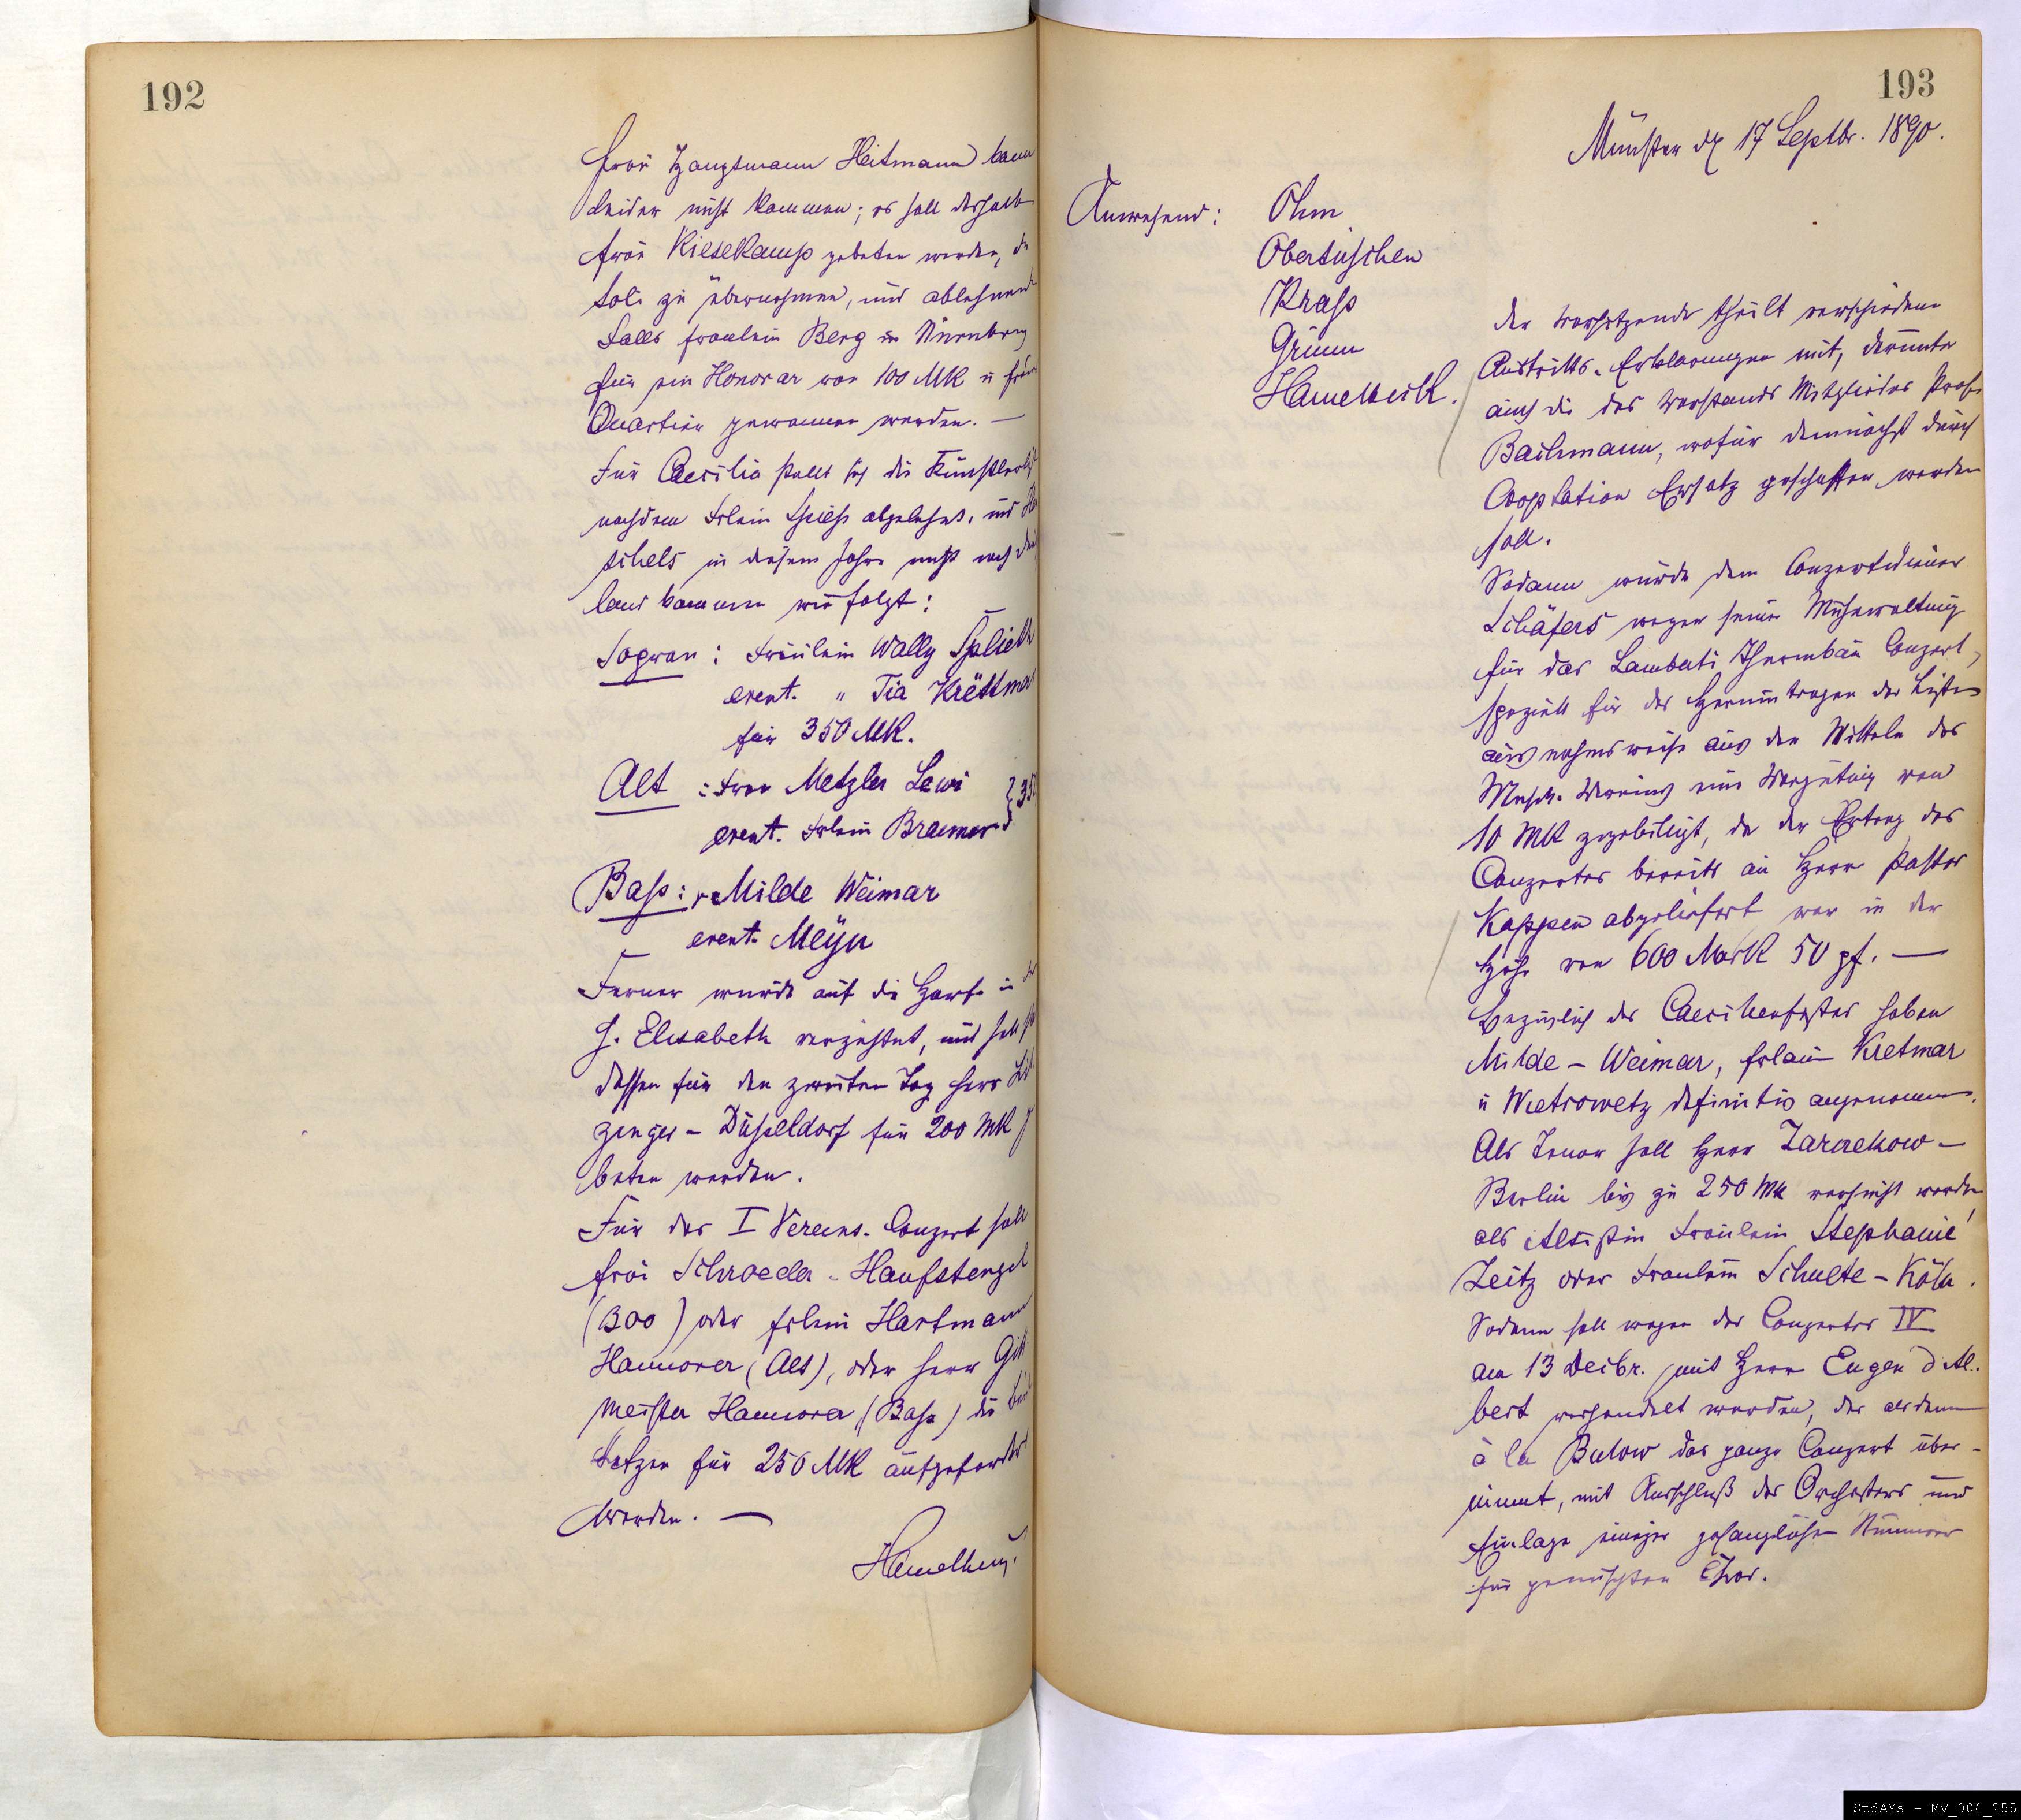 192
Frau Hauptmann Heitmann kann
leider nicht kommen; es soll deshalb
Frau Kiesekamp gebeten werden, die
Soli zu übernehmen, und ablehnenden
Falls Fraulein Berg in Nürnberg
für ein Honorar von 100 MK u freies
Quartier gewonnen werden. —
Für Caecilia stellt sich die Künstlerliste
nachdem Frlein Spiess abgelehnt, und
schels in diesem Jahre nicht nach
land kommen wie folgt:
Sopran: Fräulein Wally
event. " Tia
für 350 MK.
Alt : Frau Metzler Lewi
event. Frlein Braemer
Bass: v Milde Weimar
event. Meÿn
Ferner wurde auf die Harfe in der
H. Elisabeth verzichtet, und soll
dessen für den zweiten Tag Herr
zinger - Düsseldorf für 200 MK ge
beten werden.
Für das I Vereins-Conzert soll
Frau Schroeder-Hanfstengel
(300) oder Frlein Hartmann
Hannover (Alt), oder Herr
meister Hannover (Bass) die
für 250 MK aufgefordert
werden. —
193
Münster d 17 Septbr. 1890.
Anwesend: Ohm
Obertüschen
Krass
Grimm
Hamelbeck.
Der Vorsitzende theilt verschiedene
Austritts-Erklärungen mit, darunter
auch die des Vorstands Mitgliedes Profes
Bachmann, wofür demnächst durch
Cooptation Ersatz geschaffen werden
soll.
Sodann wurde dem Conzertdiener
Schäfers wegen seiner Mühewaltung
für das Lamberti Thurmbau Conzert,
speziell für das Herumtragen der Listen
ausnahmsweise aus den Mitteln des
Musik-Vereins eine Vergütung von
10 MK zugebilligt, da der Ertrag des
Conzertes bereits an Herrn Pastor
Kappen abgeliefert war in der
Höhe von 600 Mark 50 pf. —
Bezüglich des Caecilienfestes haben
Milde - Weimar, Frlein Kretmar
u Wietrowetz definitiv angenommen.
Als Tenor soll Herr Zarnekow -
Berlin bis zu 250 MK versucht werden,
als Altistin Fräulein Stephanie
Zeitz oder Fraulein Schulte - Köln.
Sodann soll wegen des Conzertes IV
am 13 Decbr. mit Herrn Eugen d'Al-
bert verhandelt werden, der alsdann
à la Bulow das ganze Conzert über-
nimmt, mit Ausschluß des Orchesters und
Einlage einiger gesanglicher Nummern
für gemischten Chor.
StdAMs - MV_004_255